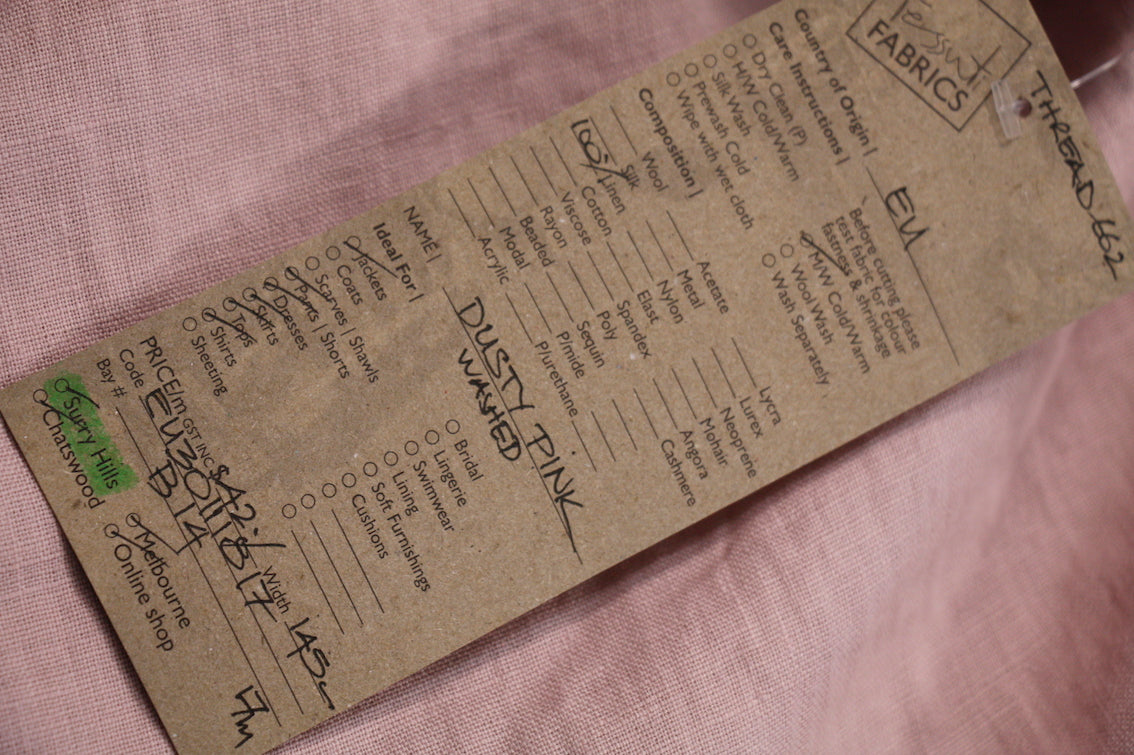 THREAD 662
Tessuti
FABRICS
Country of Origin | EU
Care Instructions |
Dry Clean (P)
H/W Cold/Warm
Silk Wash
Prewash Cold
Wipe with wet cloth
Before cutting please
test fabric for colour
fastness & shrinkage
M/W Cold/Warm
Wool Wash
Wash Separately
Composition |
Wool
Silk
100% Linen
Cotton
Viscose
Rayon
Beaded
Modal
Acrylic
Acetate
Metal
Nylon
Elast
Spandex
Poly
Sequin
P/mide
P/urethane
Lycra
Lurex
Neoprene
Mohair
Angora
Cashmere
NAME | DUSTY PINK
WASHED
Ideal For |
Jackets
Coats
Scarves | Shawls
Pants | Shorts
Dresses
Skirts
Tops
Shirts
Sheeting
Bridal
Lingerie
Swimwear
Lining
Soft Furnishings
Cushions
PRICE/m GST INC $42.- Width 145c
Code EU30111817
Bay # B14 17m
Surry Hills
Chatswood
Melbourne
Online shop